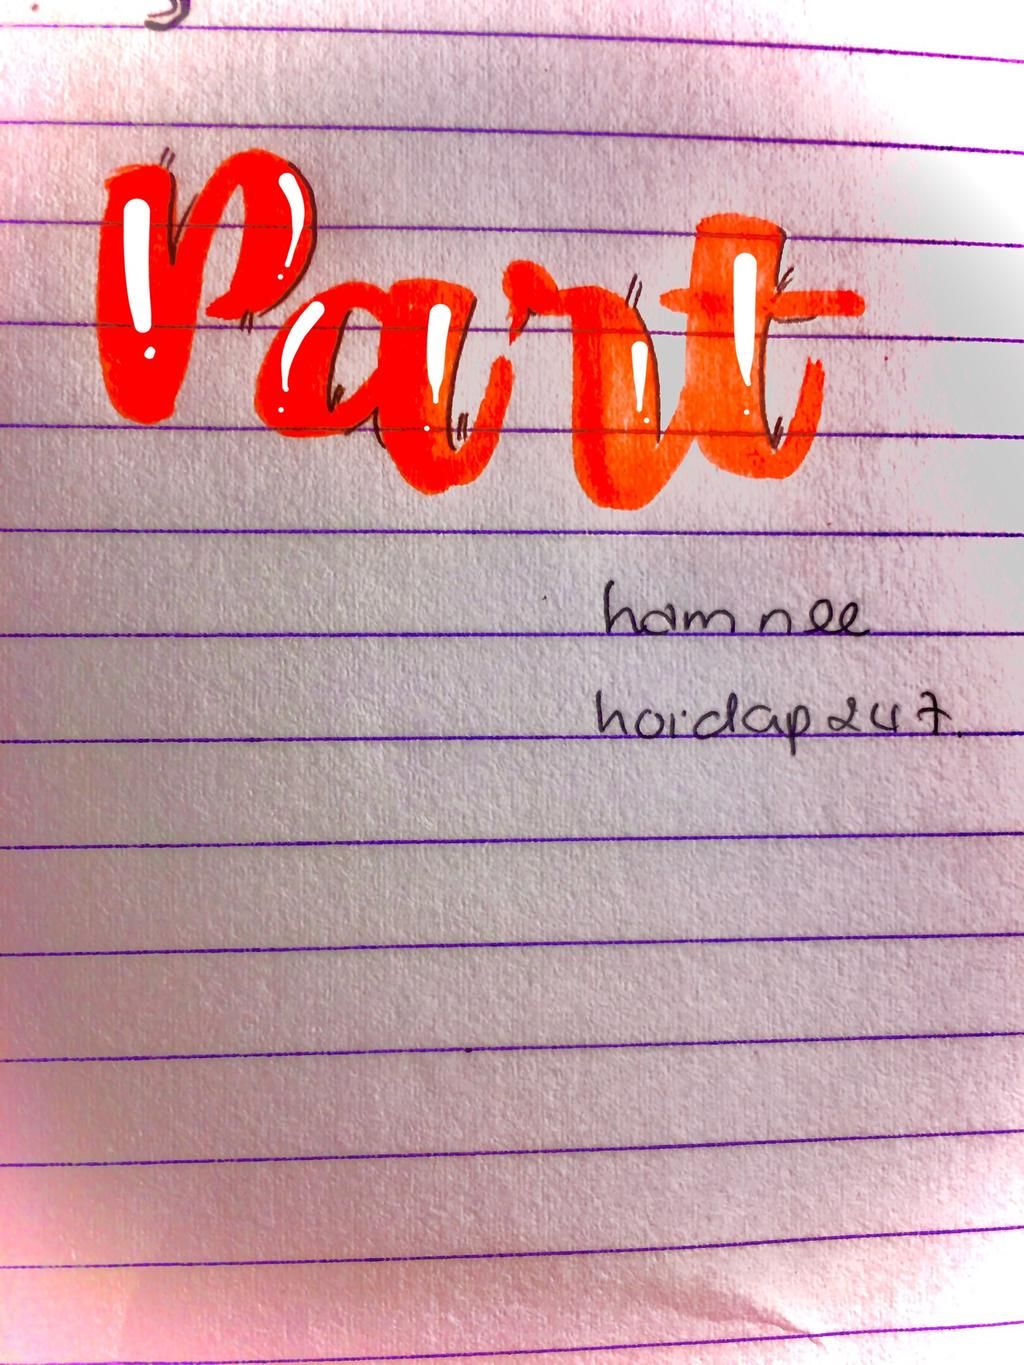 Part
ham nee
hoidap247.